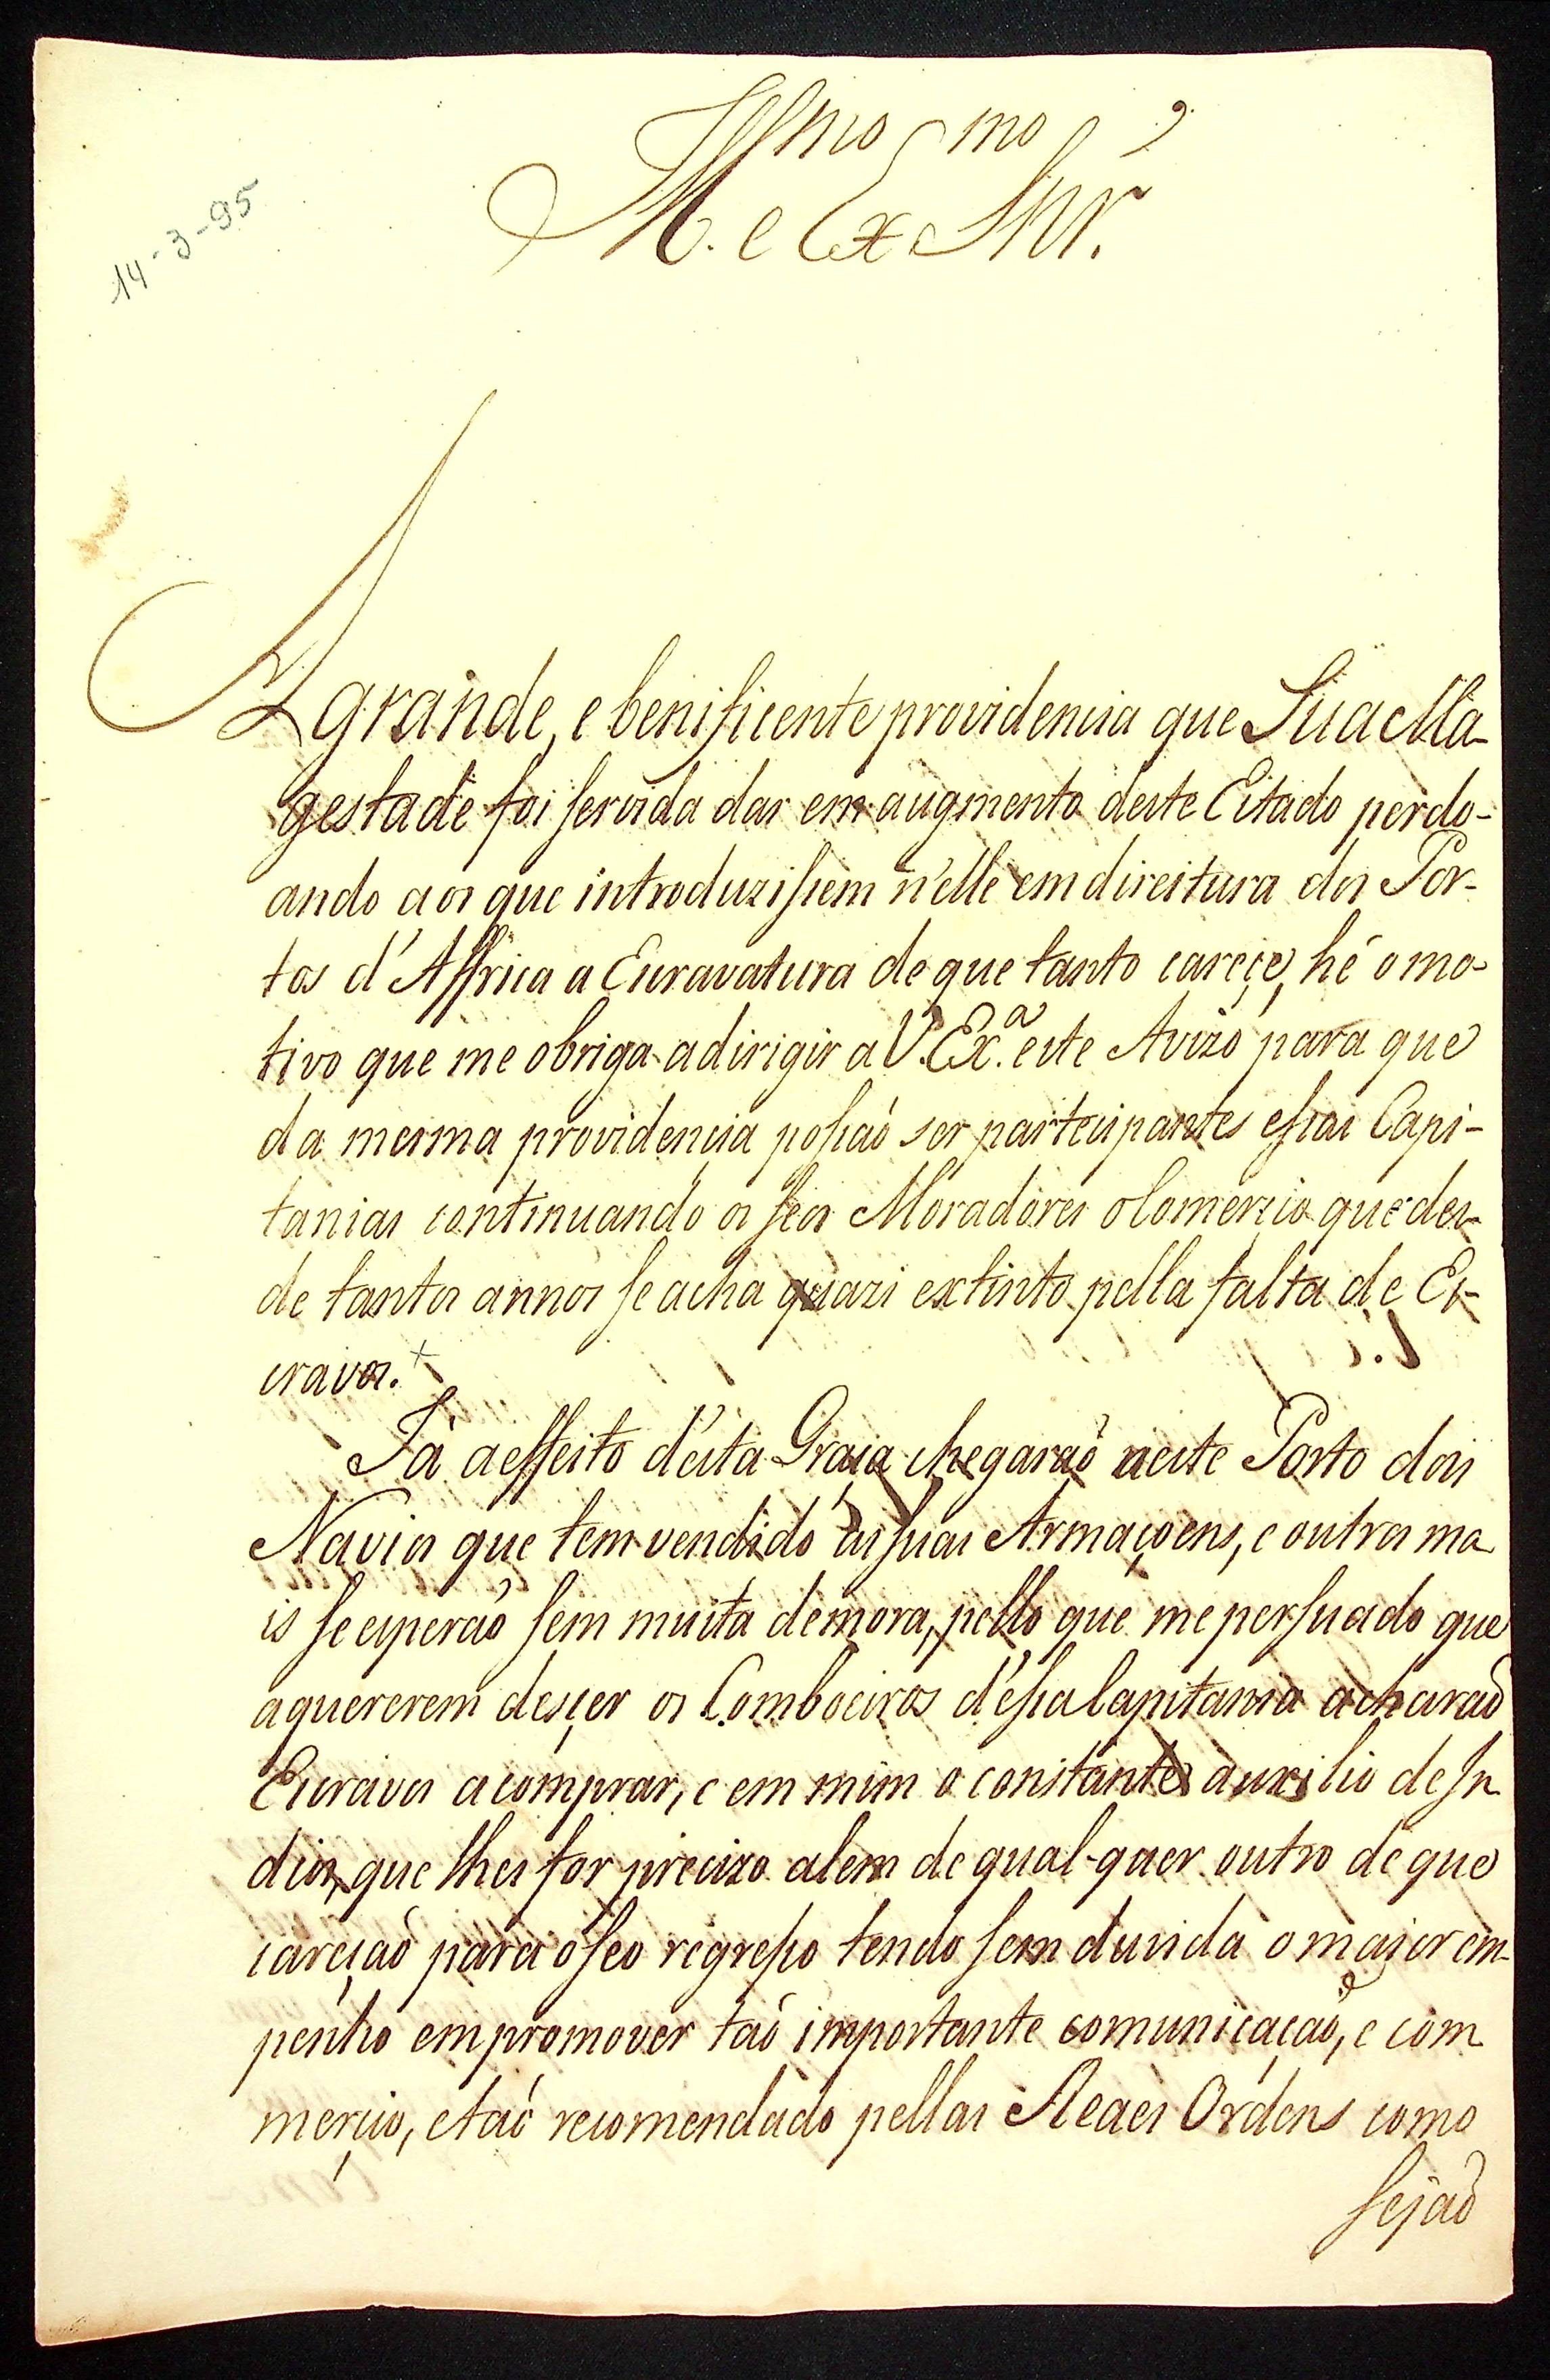 14-3-95
Illmo e Exmo Snr.
A grande, e benificente providencia que Sua Ma-
gestade foi servida dar em augmento deste Estado perdo-
ando aos que introduzissem n'elle em direitura dos Por-
tos d'Affrica a Escravatura de que tanto careçe, hé o mo-
tivo que me obriga a dirigir a V. Exa. este Avizo para que
da mesma providencia possaõ ser partecipantes essas Capi-
tanias continuando os seos Moradores o Comerçio que des-
de tantos annos se acha quazi extinto pella falta de Es-
cravos.
Já a effeito d'esta Graça chegaraõ neste Porto dois
Navios que tem vendido as suas Armaçoens, e outros ma
is se esperaõ sem muita demora, pello que me persuado que
a quererem desçer os Comboeiros d'essa Capitania acharaõ
Escravos a comprar, e em mim o constante auxilio de In
dios, que lhes for precizo alem de qual-quer outro de que
careçaõ para o seo regresso tendo sem duvida o maior em-
penho em promover taõ importante comunicaçaõ, e com
merçio, e taõ recomendado pellas Reaes Ordens como
sejaõ